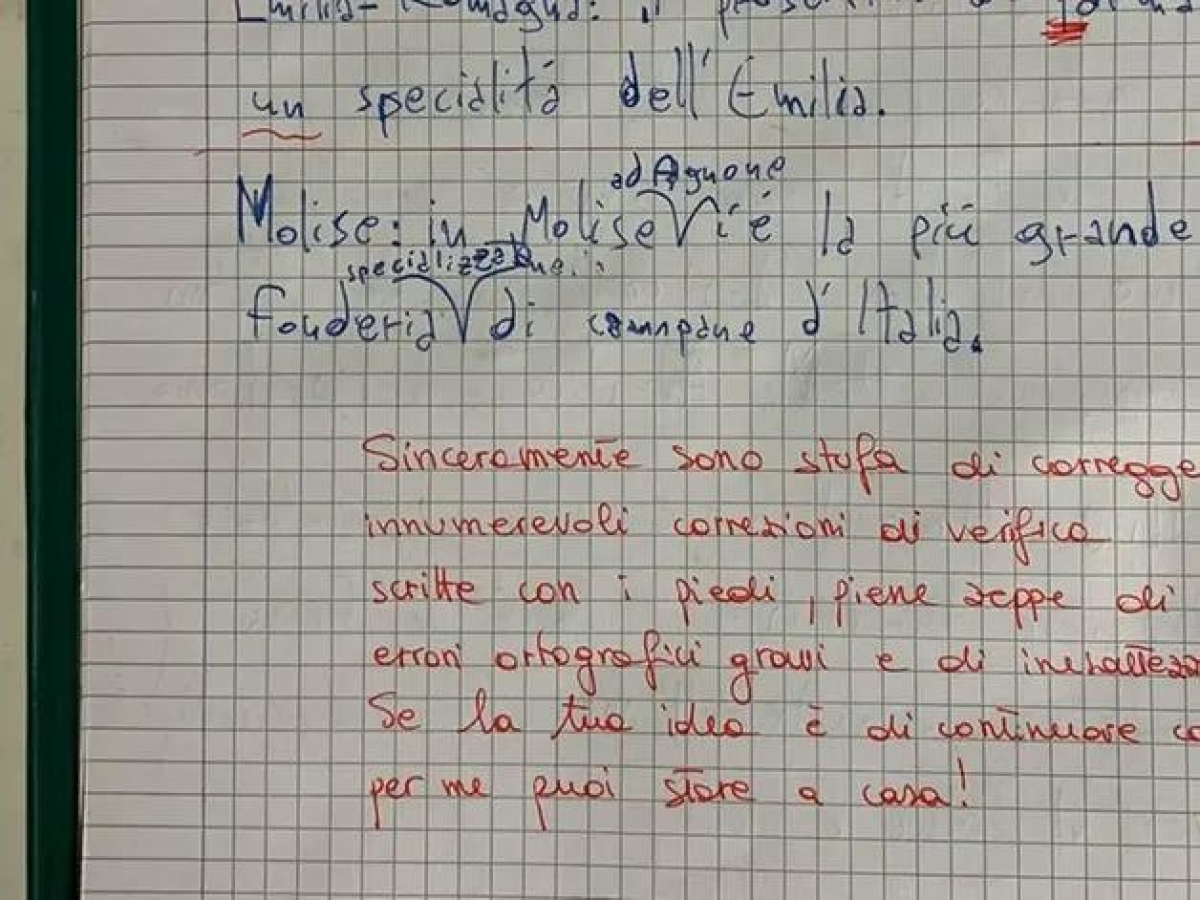 Emilia-Romagna: il
un specialità dell'Emilia.
ad Agnone
Molise: in Molise V'é la più grande
specializzata
fonderia di campane d'Italia.
Sinceramente sono stufa di corregge
innumerevoli correzioni di verifica
scritte con i piedi, piene zeppe di
errori ortografici gravi e di inesattezz
Se la tua idea è di continuare co
per me puoi stare a casa!